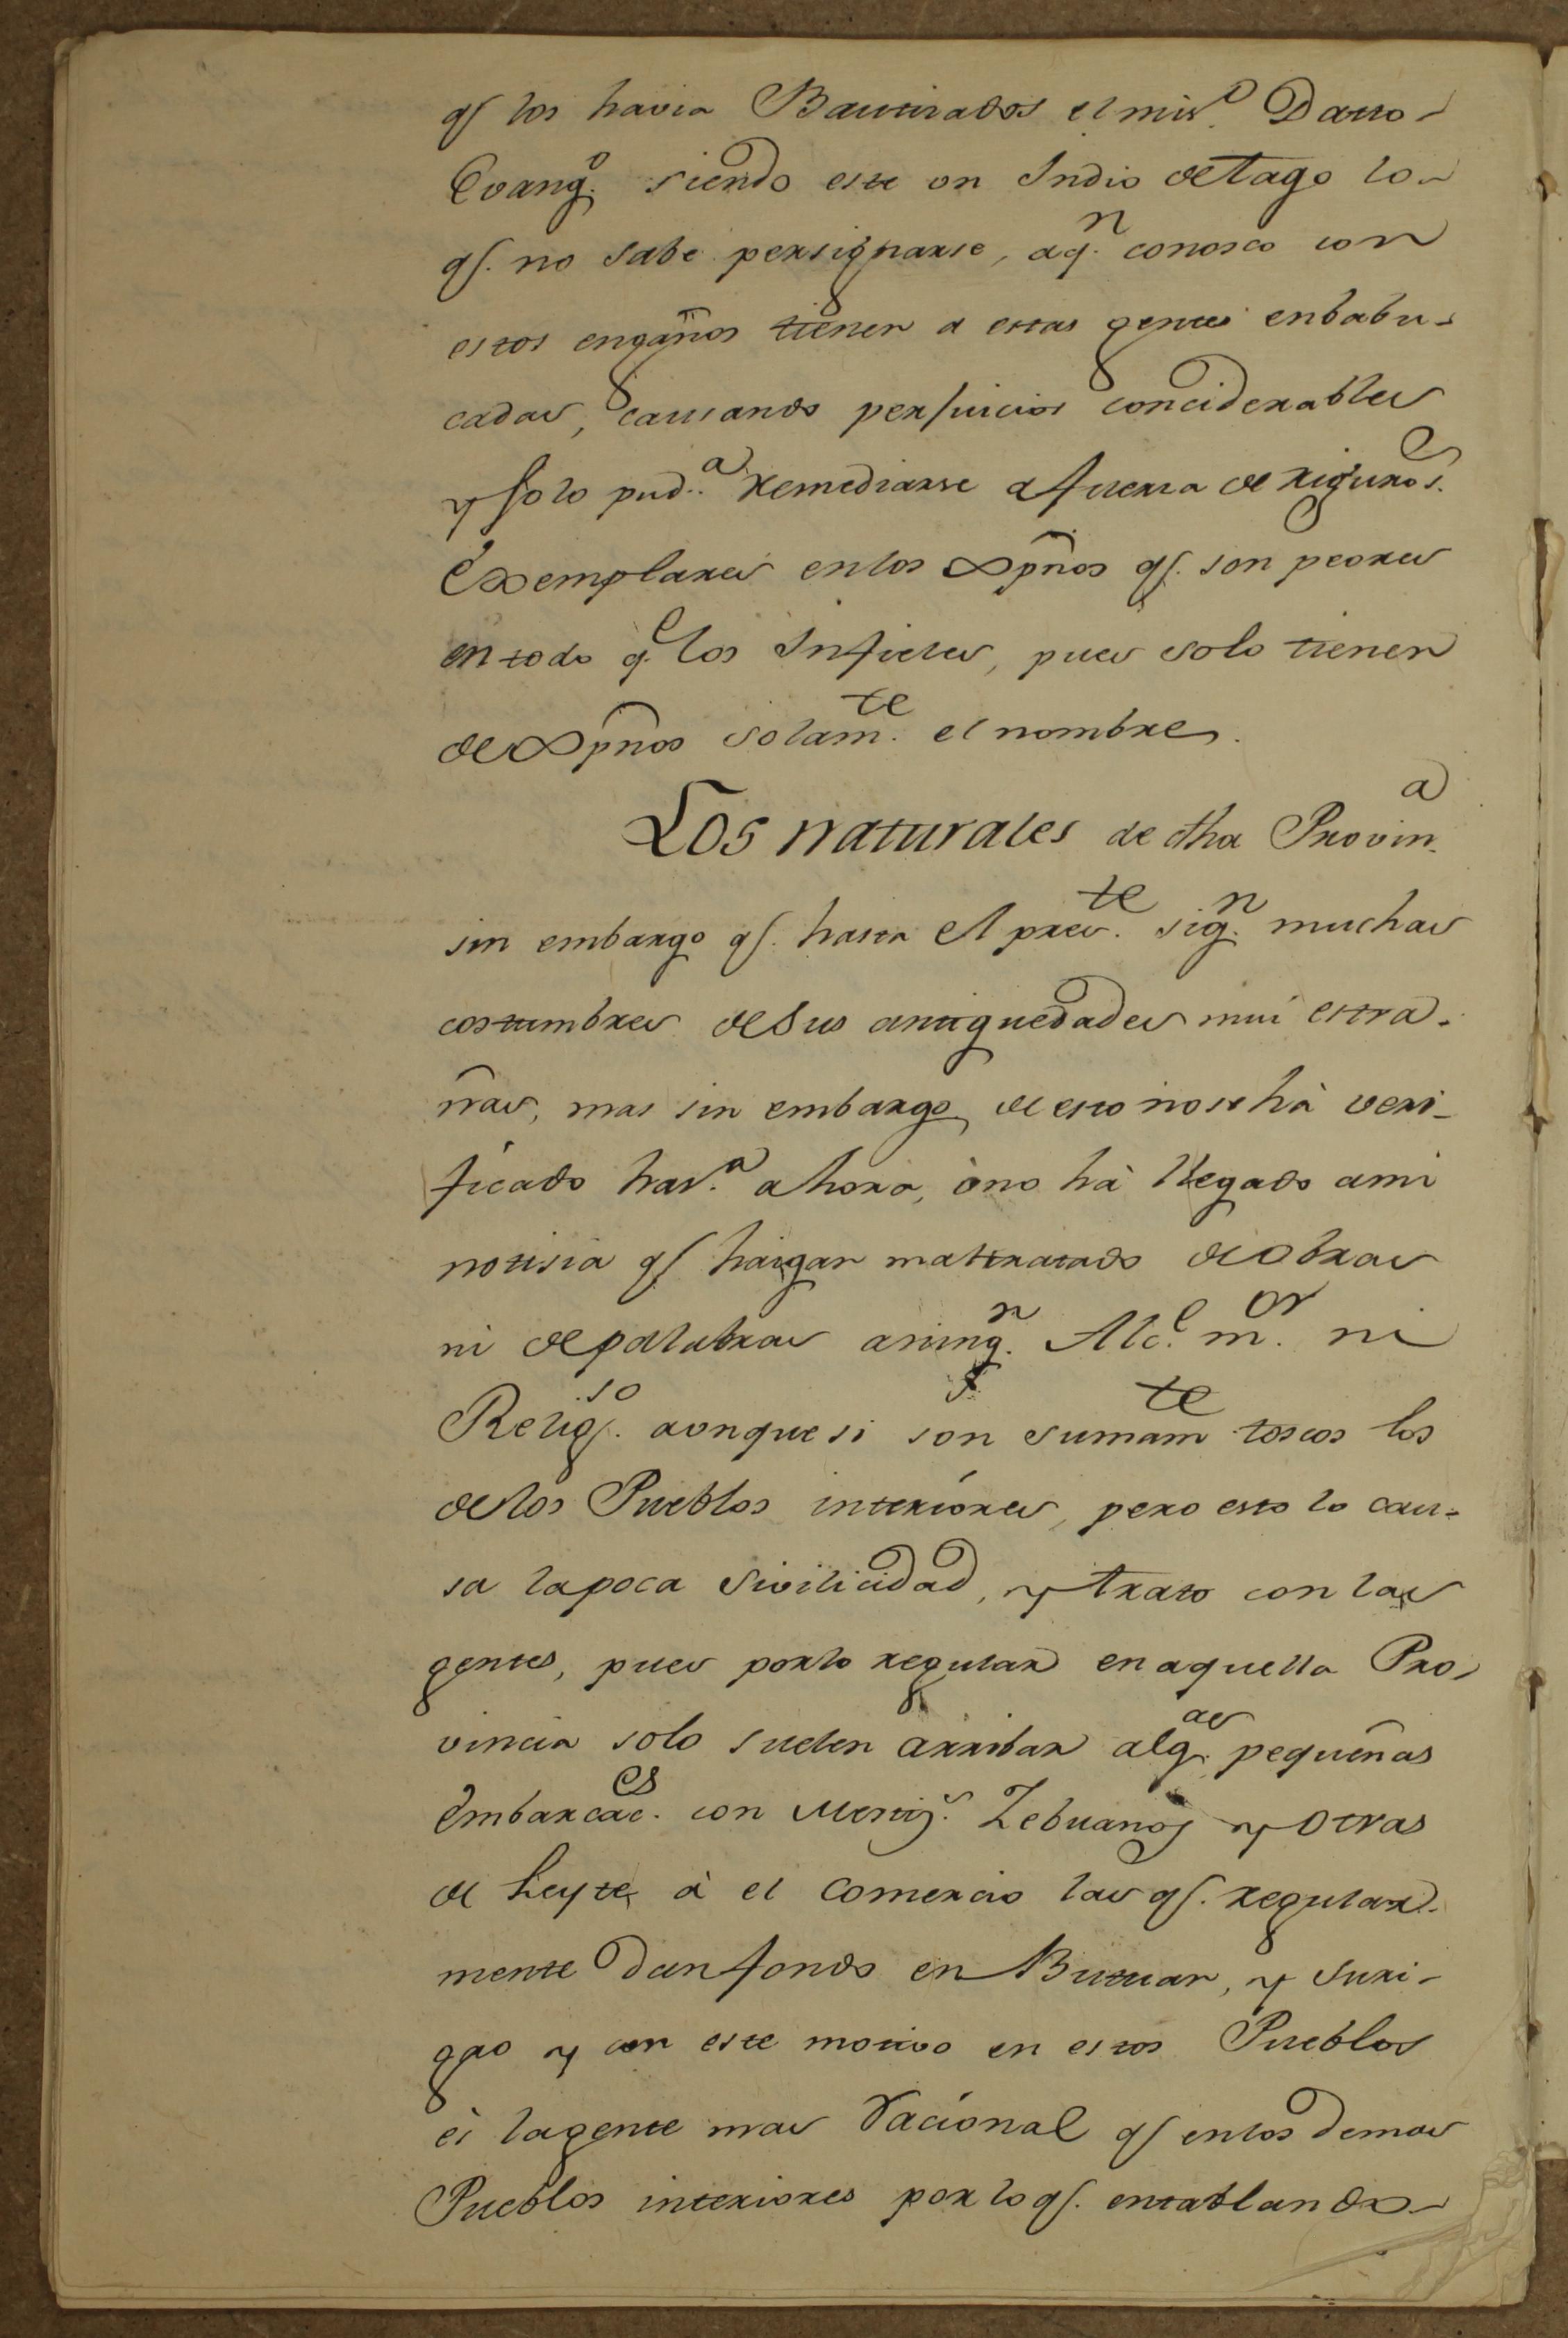 q.^e los havia Bautizados el mis.^o Dato
Evang.^o siendo este un Indio de Tago lo
q.^e no sabe persignarse, a q.^n conosco con
estos engaños tienen a estas gentes enbabu-
cadas, causando perjuicios conciderables
y solo pud.^a remediarse a fuerza de riguros.^s
Exemplares en los Xpños q.^e son peores
en todo q.^e los Infieles, pues solo tienen
de Xpños solam.^te el nombre.
Los naturales de dha Provin.^a
sin embargo q.^e hasta el pres.^te sig.^n muchas
costumbres de sus antiguedades mui estra-
ñas, mas sin embargo de esto no se hà veri-
ficado has.^a ahora, ò no hà llegado a mi
notisia q.^e haigan maltratado de obras
ni de palabras a ning.^n Alc.^e m.^or ni
Relig.^so aunque si son sumam^te toscos los
de los Pueblos interiores, pero esto lo cau-
sa la poca sivilicidad, y trato con las
gentes, pues por lo regular en aquella Pro-
vincia solo suelen arribar alg.^as pequeñas
Embarcac.^es con Mestiz.^s Zebuanos y otras
de Leyte à el comercio las q.^e regular-
mente dan fondo en Butuan, y Suri-
gao y con este motivo en estos Pueblos
es la gente mas racional q.^e en los demas
Pueblos interiores por lo q.^e entablando